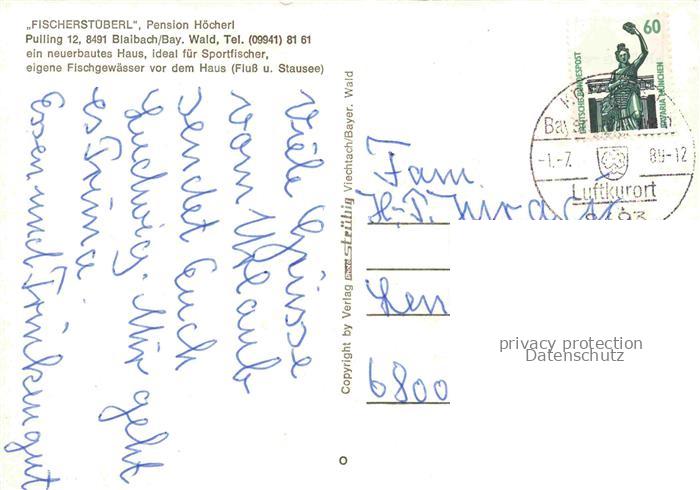 „FISCHERSTÜBERL", Pension Höcherl
Pulling 12, 8491 Blaibach/Bay. Wald, Tel. (09941) 81 61
ein neuerbautes Haus, ideal für Sportfischer,
eigene Fischgewässer vor dem Haus (Fluß u. Stausee)
Viele Grüsse
vom Urlaub
sendet Euch
Ludwig. Mir geht
es Prima.
Essen und Trinken gut
Copyright by Verlag strühig Viechtach/Bayer. Wald
60
DEUTSCHE BUNDESPOST
BAVARIA MÜNCHEN
-1.-7. 89-12
Luftkurort
Fam.
6800
privacy protection
Datenschutz